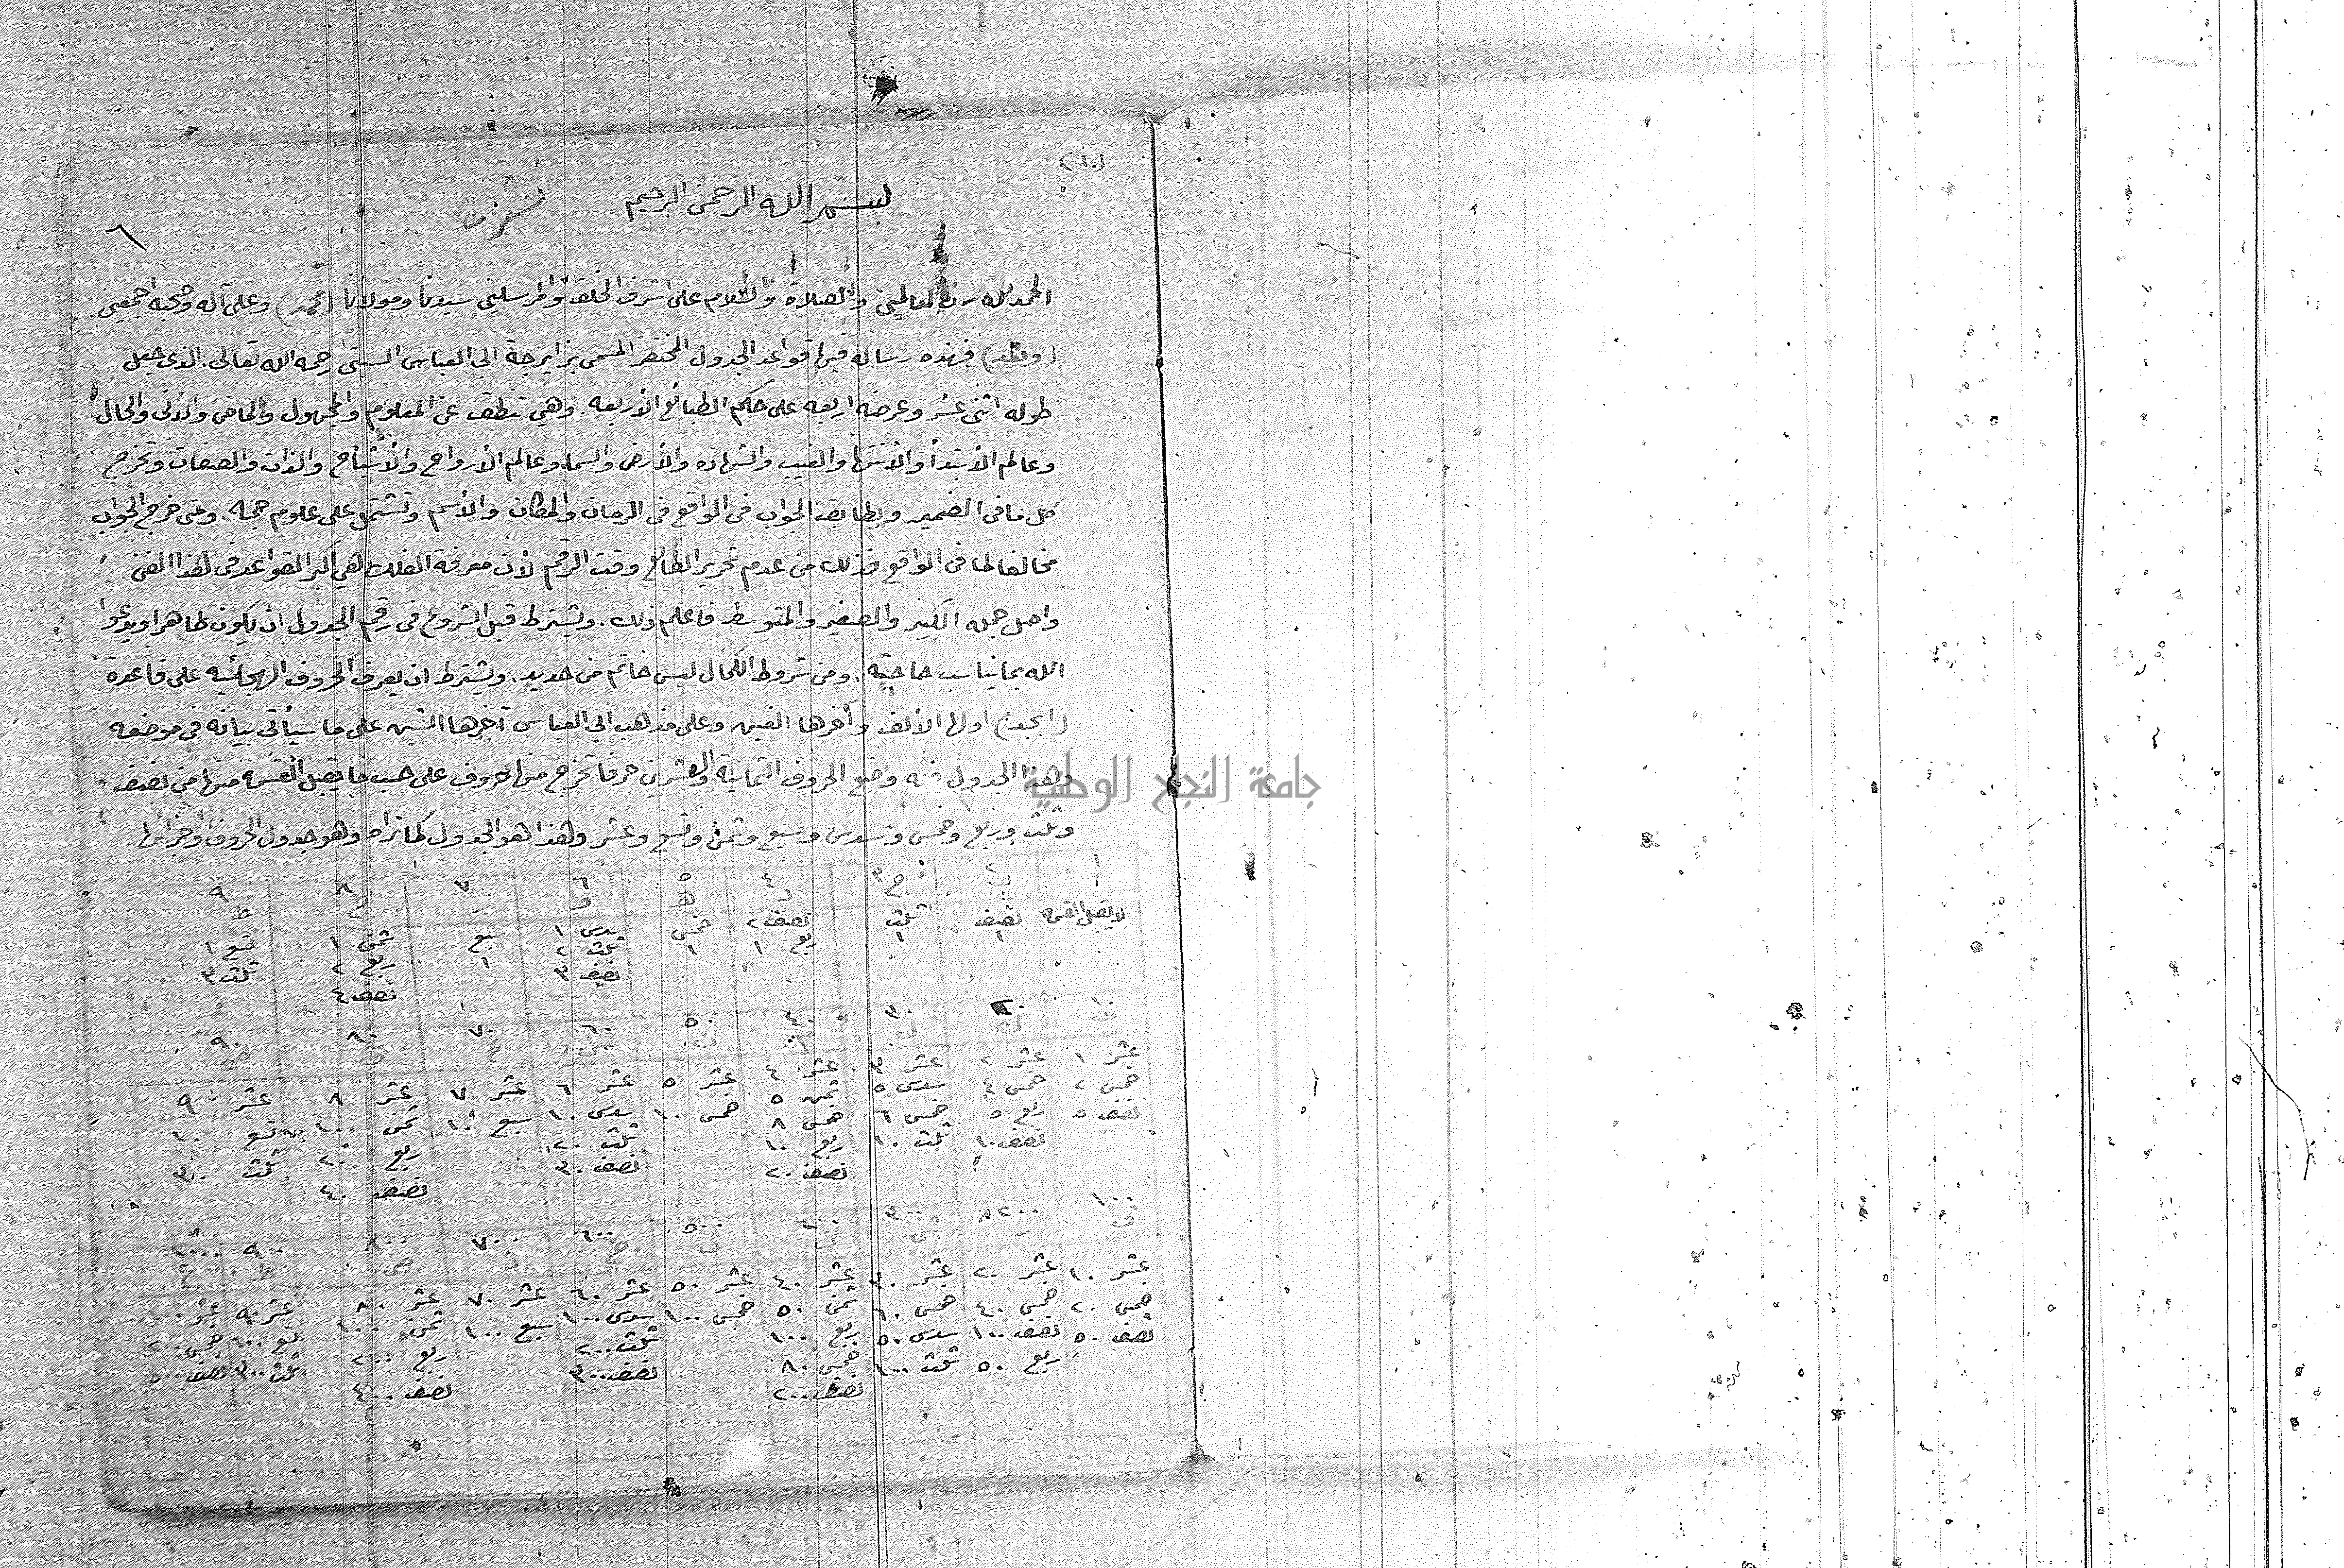 (١٠)
بسم الله الرحمن الرحيم
٦
الحمد لله رب العالمين والصلاة والسلام على اشرف الخلق والمرسلين سيدنا ومولانا (محمد) وعلى آله وصحبه اجمعين
(وبعد) فهذه رساله فيها قواعد الجدول المختصر المسمى بزايرجة ابى العباس السبتى رحمه الله تعالى. الذى جعل
طوله اثنى عشر وعرضه اربعه على حكم الطبائع الأربعه. وهي تنطق عن المعلوم والمجهول والماضى والآتى والحال
وعالم الأبتدأ والأنتها والغيب والشهاده والأرض والسما وعالم الأرواح والأشباح والذات والصفات وتخرج
كل ما فى الضمير ويطابق الجواب فى الواقع فى الزمان والمكان والأسم وتشتمل على علوم جمه. ومتى خرج الجواب
مخالفا لما فى الواقع فذلك من عدم تحرير الطالع وقت الرقم لأن معرفة الفلك هي اكبر القواعد فى هذا الفن
واصل جمله الكبير والصغير والمتوسط فاعلم ذلك. ويشترط قبل الشروع فى رقم الجدول ان يكون طاهرا ويدعوا
الله بما يناسب حاجته. ومن شروط الكمال لبس خاتم من حديد. ويشترط ان يعرف الحروف الهجائيه على قاعدة
(ابجد) اولها الألف وآخرها الغين وعلى مذهب ابى العباس آخرها الشين على ما سيأتى بيانه فى موضعه
وهذا الجدول فيه وضع الحروف الثمانية والعشرين حرفا تخرج منها حروف على حسب ما يقبل القسمه منها من نصف
وثلث وربع وخمس وسدس وسبع وثمن وتسع وعشر وهذا هو الجدول كما تراه وهو جدول الحروف واجزائها
جامعة النجاح الوطنية
١ ٢ ٣ ٤ ٥ ٦ ٧ ٨ ٩
ا ب ج د هـ و ز ح ط
لا يقبل القسمه نصف ثلث نصف ٢ خمس سدس ١ سبع ثمن ١ تسع ١
١ ١ ربع ١ ١ ثلث ٢ ١ ربع ٢ ثلث ٣
نصف ٣ نصف ٤
٢٠ ٣٠ ٤٠ ٥٠ ٦٠ ٧٠ ٨٠ ٩٠
ك ل م ن س ع ف ص
عشر ١ عشر ٢ عشر ٣ عشر ٤ عشر ٥ عشر ٦ عشر ٧ عشر ٨ عشر ٩
خمس ٢ خمس ٤ سدس ٥ ثمن ٥ خمس ١٠ سدس ١٠ سبع ١٠ ثمن ١٠ تسع ١٠
نصف ٥ ربع ٥ خمس ٦ خمس ٨ ثلث ٢٠ ربع ٢٠ ثلث ٣٠
نصف ١٠ ثلث ١٠ ربع ١٠ نصف ٣٠ نصف ٤٠
نصف ٢٠
١٠٠ ٢٠٠ ٣٠٠ ٤٠٠ ٥٠٠ ٦٠٠ ٧٠٠ ٨٠٠ ٩٠٠ ١٠٠٠
ق ر ش ت ث خ ذ ض ظ غ
عشر ١٠ عشر ٢٠ عشر ٣٠ عشر ٤٠ عشر ٥٠ عشر ٦٠ عشر ٧٠ عشر ٨٠ عشر ٩٠ عشر ١٠٠
خمس ٢٠ خمس ٤٠ خمس ٦٠ ثمن ٥٠ خمس ١٠٠ سدس ١٠٠ سبع ١٠٠ ثمن ١٠٠ تسع ١٠٠ خمس ٢٠٠
نصف ٥٠ نصف ١٠٠ سدس ٥٠ ربع ١٠٠ ثلث ٢٠٠ ربع ٢٠٠ ثلث ٣٠٠ نصف ٥٠٠
ربع ٥٠ ثلث ١٠٠ خمس ٨٠ نصف ٣٠٠ نصف ٤٠٠
نصف ٢٠٠